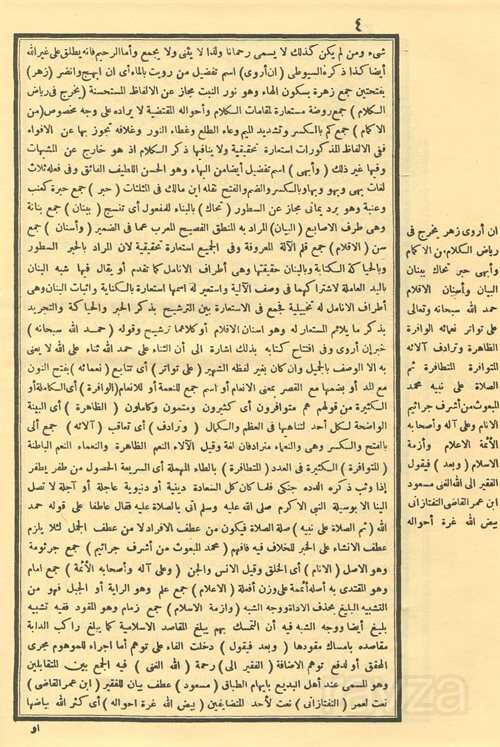 ٤
شىء ومن لم يكن كذلك لا يسمى رحمانا ولذا لا يثنى ولا يجمع وأما الرحيم فانه يطلق على غير الله
أيضا كذا ذكره السيوطى (ان أروى) اسم تفضيل من رويت بالماء أى ان ابهج وانضر (زهر)
بفتحتين جمع زهرة بسكون الهاء وهو نور النبت مجاز عن الالفاظ المستحسنة (يخرج فى رياض
الكلام) جمع روضة مستعارة لمقامات الكلام وأحواله المقتضية لا يراده على وجه مخصوص (من
الاكمام) جمع كم بالكسر وتشديد الميم وعاء الطلع وغطاء النور وغلافه تجوز بها عن الافواه
ففى الالفاظ المذكورات استعارة تحقيقية ولا ينافيها ذكر الكلام اذ هو خارج عن المشبهات
وقيها غير ذلك (وأبهى) اسم تفضيل أيضا من البهاء وهو الحسن اللطيف الفائق وفى فعله ثلاث
لغات بهى وبهو وبها وبالكسر والضم والفتح نقله ابن مالك فى المثلثات (حبر) جمع حبرة كعنب
وعنبة وهو برد يمانى مجاز عن السطور (تحاك) بالبناء للمفعول أى تنسج (ببنان) جمع بنانة
وهى طرف الاصابع (البيان) المراد به المنطق الفصيح المعرب عما فى الضمير (وأسنان) جمع
سن (الاقلام) جمع قلم الآلة المعروفة وفى الجميع استعارة تحقيقية لان المراد بالحبر السطور
وبالحياكة الكتابة وبالبنان حقيقتها وهى أطراف الانامل كما تقدم أو يقال فيها شبه البنان
باليد العاملة لاشتراكهما فى وصف الآلية واستعير له اسمها استعارة بالكناية واثبات البنان وهى
أطراف الانامل له تخييلية فجمع فى الاستعارة بين الترشيح بذكر الحبر والحياكة والتجريد
بذكر ما يلائم المستعار له وهو اسنان الاقلام أو كلاهما ترشيح وقوله (حمد الله سبحانه)
خبر ان أروى وفى افتتاح كتابه بذلك اشارة الى أن الثناء على حمد الله ثناء على الله لا يعنى
به الا الوصف بالجميل وان كان بغير لفظه الشهير (على تواتر) أى تتابع (نعمائه) بفتح النون
مع المد أو بضمها مع القصر بمعنى الانعام أو اسم جمع للنعمة أو للانعام (الوافرة) أى الكاملة أو
الكثيرة من قولهم هم متوافرون أى كثيرون ومتمون وكاملون (الظاهرة) أى البينة
الواضحة لكل أحد لتناهيها فى العظم والكمال (وترادف) أى تعاقب (آلائه) جمع ألى
بالفتح والكسر وهى والنعماء مترادفان لغة وقيل الآلاء النعم الظاهرة والنعماء النعم الباطنة
(المتوافرة) الكثيرة فى العدد (المتظافرة) بالطاء المهملة أى السريعة الحصول من طفر يطفر
اذا وثب ذكره الدده جنكى فلما كان كل السعادة دينية أو دنيوية عاجلة أو آجلة لا تصل
الينا الا بوسيلة النبى الاكرم صلى الله عليه وسلم أتى بالصلاة عليه فقال عاطفا على قوله حمد
الله (ثم الصلاة على نبيه) صلة الصلاة فيكون من عطف الافراد لا من عطف الجمل لئلا يلزم
عطف الانشاء على الخبر للخلاف فيه فافهم (محمد المبعوث من أشرف جراثيم) جمع جرثومة
وهو الاصل (الانام) أى الخلق وقيل الانس والجن (وعلى آله وأصحابه الأئمة) جمع امام
وهو المقتدى به أصله أئممة على وزن أفعلة (الاعلام) جمع علم وهو الراية أو الجبل فهو من
التشبيه البليغ بحذف الاداة ووجه الشبه (وازمة الاسلام) جمع زمام وهو المقود ففيه تشبيه
بليغ أيضا ووجه الشبه فيه أن التمسك بهم يبلغ المقاصد الاسلامية كما يبلغ راكب الدابة
مقاصده بامساك مقودها (وبعد فيقول) دخلت الفاء على توهم أما اجراء للموهوم مجرى
المحقق أو لدفع توهم الاضافة (الفقير الى) رحمة (الله الغنى) فيه الجمع بين المتقابلين
وهو المسمى عند أهل البديع بايهام الطباق (مسعود) عطف بيان للفقير (ابن عمر القاضى)
نعت لعمر (التفتازانى) نعت لأحد المتضايفين (بيض الله غرة احواله) أى كثر الله بياضها
او
ان أروى زهر يخرج فى
رياض الكلام من الاكمام
وأبهى حبر تحاك ببنان
البيان وأسنان الاقلام
حمد الله سبحانه وتعالى
على تواتر نعمائه الوافرة
الظاهرة وترادف آلائه
المتوافرة المتظافرة ثم
الصلاة على نبيه محمد
المبعوث من أشرف جراثيم
الانام وعلى آله وأصحابه
الأئمة الاعلام وأزمة
الاسلام (وبعد) فيقول
الفقير الى الله الغنى مسعود
ابن عمر القاضى التفتازانى
بيض الله غرة احواله